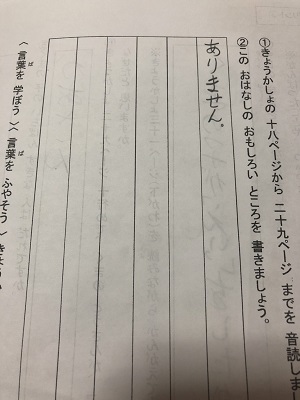 ①きょうかしょの 十八ページから 二十九ページ までを 音読しま
②この おはなしの おもしろい ところを 書きましょう。
ありません。
〈言葉を 学ぼう〉〈言葉を ふやそう〉
ば
ば